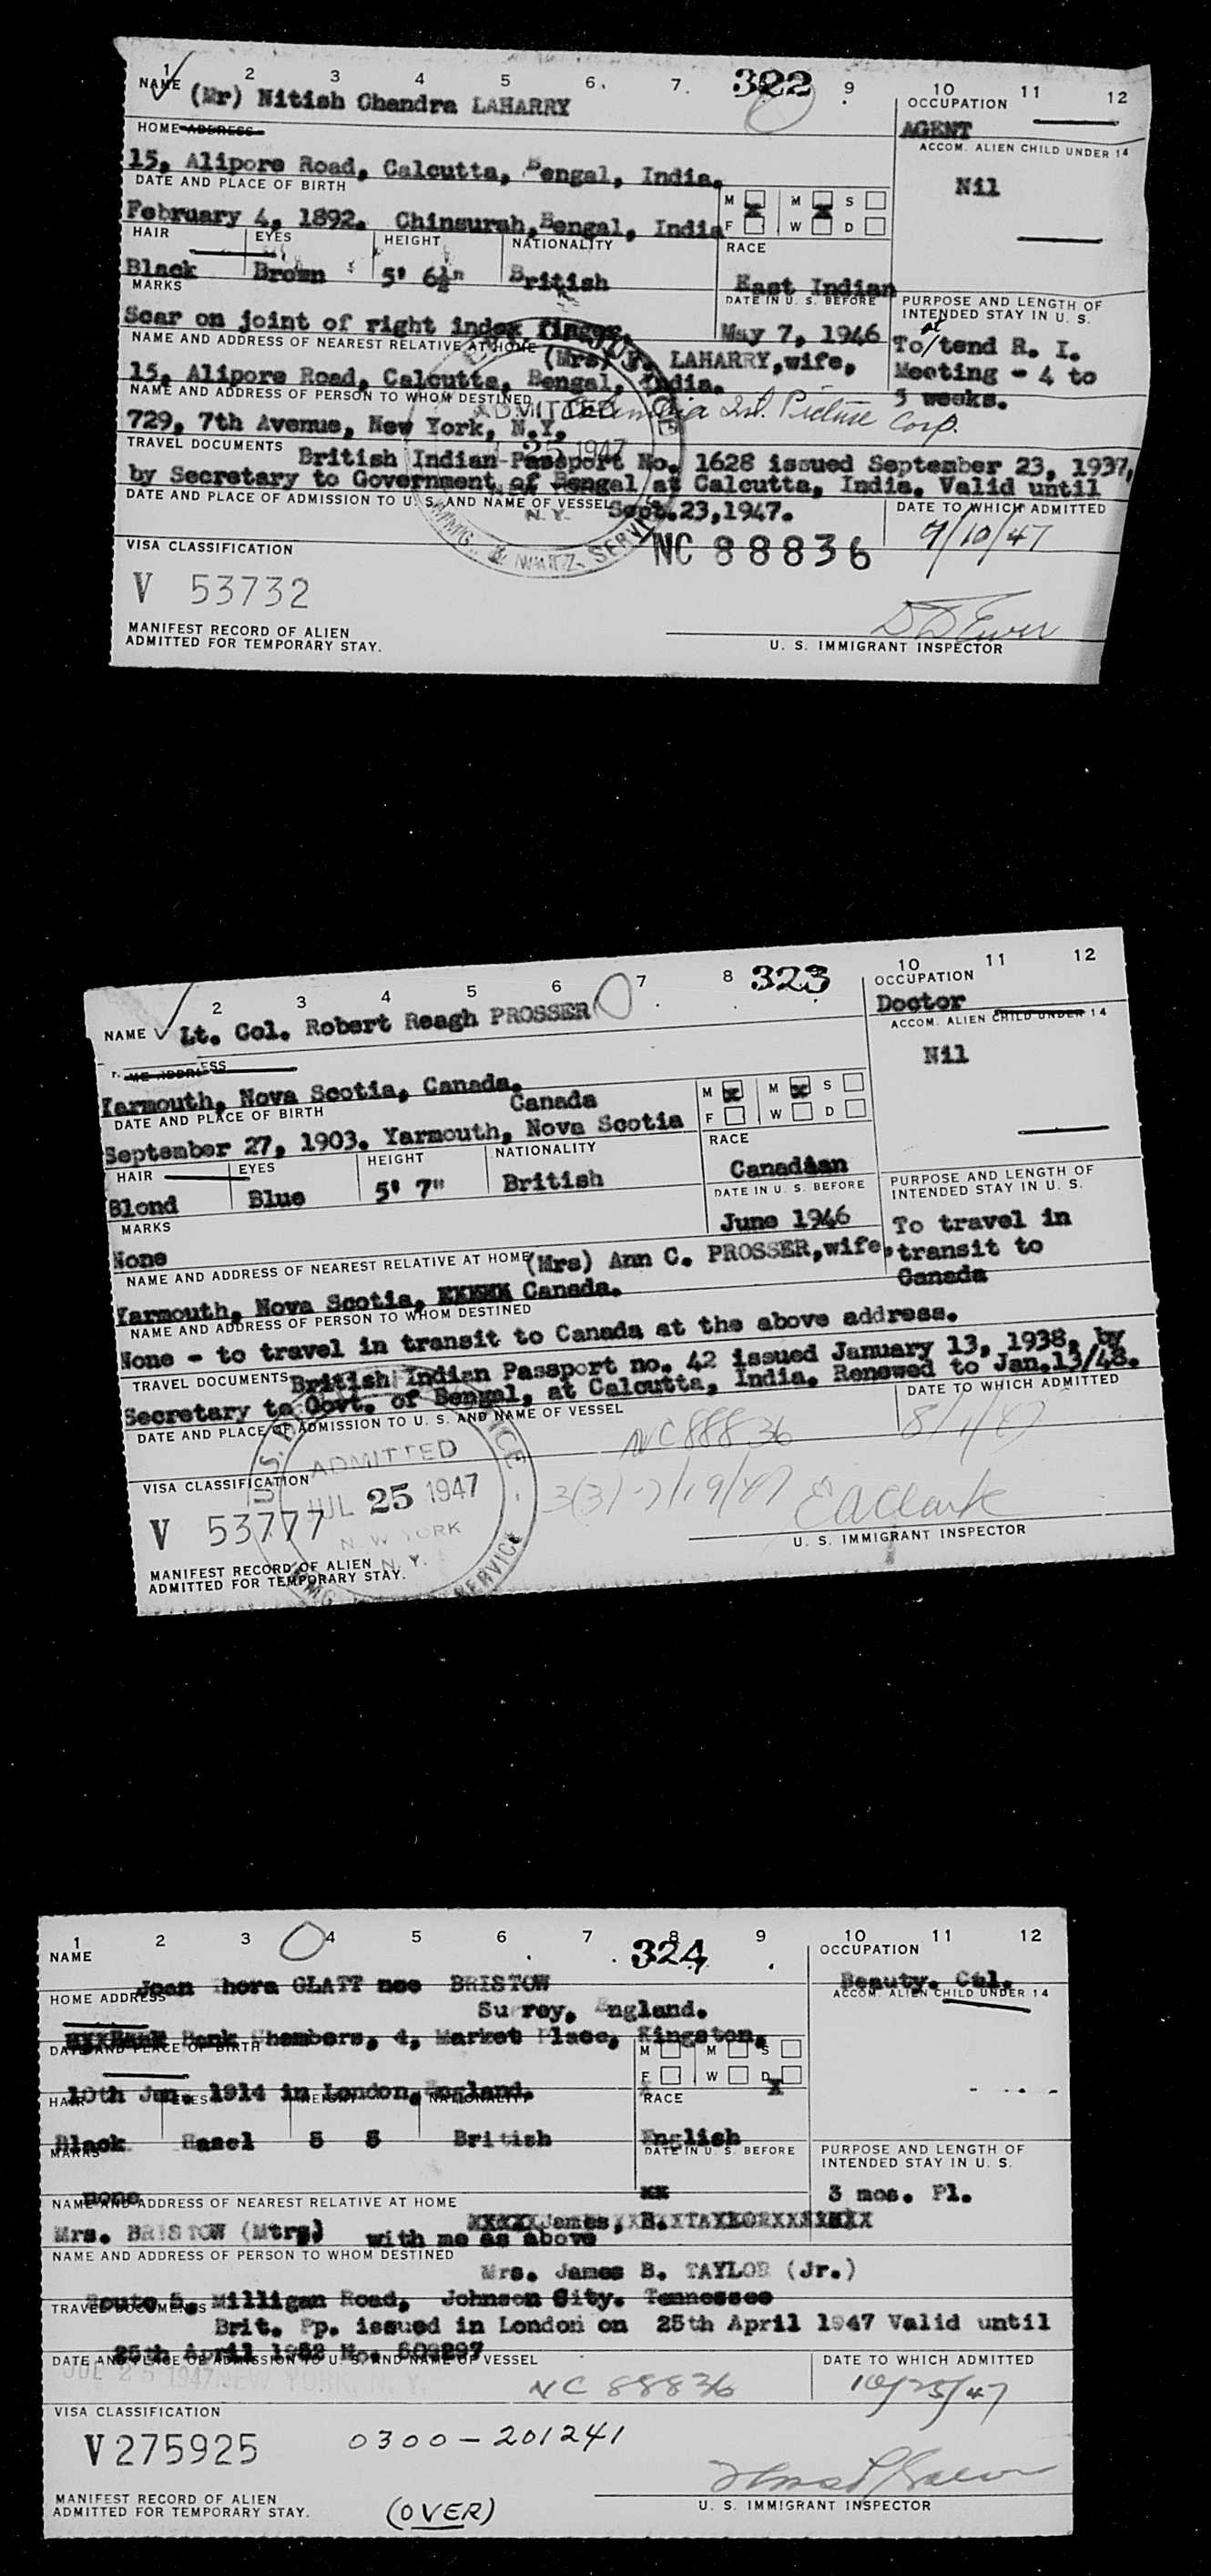 1 2 3 4 5 6. 7. 322 9 10 11 12
NAME (Mr) Nitish Chandra LAHARRY
OCCUPATION
AGENT
HOME ADDRESS
ACCOM. ALIEN CHILD UNDER 14
Nil
15, Alipore Road, Calcutta, Bengal, India.
DATE AND PLACE OF BIRTH
M M S
February 4, 1892. Chinsurah, Bengal, India
F W D
HAIR EYES HEIGHT NATIONALITY RACE
Black Brown 5' 6½" British East Indian
MARKS DATE IN U. S. BEFORE
PURPOSE AND LENGTH OF
INTENDED STAY IN U. S.
Scar on joint of right index finger. May 7, 1946
To/tend R. I.
at
Meeting - 4 to
5 weeks.
NAME AND ADDRESS OF NEAREST RELATIVE AT HOME
(Mrs) LAHARRY, wife,
15, Alipore Road, Calcutta, Bengal, India.
NAME AND ADDRESS OF PERSON TO WHOM DESTINED
ADMITTED
Columbia Int. Picture Corp.
729, 7th Avenue, New York, N.Y.
25 1947
TRAVEL DOCUMENTS
British Indian Passport No. 1628 issued September 23, 1937,
by Secretary to Government of Bengal at Calcutta, India. Valid until
DATE AND PLACE OF ADMISSION TO U. S. AND NAME OF VESSEL
Sept. 23, 1947.
DATE TO WHICH ADMITTED
9/10/47
N. Y.
IMMIG. & NATZ. SERVICE
NC 88836
VISA CLASSIFICATION
V 53732
MANIFEST RECORD OF ALIEN
ADMITTED FOR TEMPORARY STAY.
U. S. IMMIGRANT INSPECTOR
2 3 4 5 6 7 8 323 10 11 12
NAME Lt. Col. Robert Reagh PROSSER
OCCUPATION
Doctor
ACCOM. ALIEN CHILD UNDER 14
Nil
Yarmouth, Nova Scotia, Canada.
DATE AND PLACE OF BIRTH
Canada
M M S
September 27, 1903. Yarmouth, Nova Scotia
F W D
HAIR EYES HEIGHT NATIONALITY RACE
Blond Blue 5' 7" British Canadian
MARKS DATE IN U. S. BEFORE
None June 1946
PURPOSE AND LENGTH OF
INTENDED STAY IN U. S.
To travel in
transit to
Canada
NAME AND ADDRESS OF NEAREST RELATIVE AT HOME
(Mrs) Ann C. PROSSER, wife,
Yarmouth, Nova Scotia, Canada.
NAME AND ADDRESS OF PERSON TO WHOM DESTINED
None - to travel in transit to Canada at the above address.
TRAVEL DOCUMENTS
British Indian Passport no. 42 issued January 13, 1938, by
Secretary to Govt. of Bengal, at Calcutta, India. Renewed to Jan.13/48.
DATE AND PLACE OF ADMISSION TO U. S. AND NAME OF VESSEL
DATE TO WHICH ADMITTED
8/1/47
NC 88836
VISA CLASSIFICATION
ADMITTED
JUL 25 1947
NEW YORK
N. Y.
3(3)-7/19/47
EA Clark
V 53777
U. S. IMMIGRANT INSPECTOR
MANIFEST RECORD OF ALIEN
ADMITTED FOR TEMPORARY STAY.
1 2 3 4 5 6 7 8 324 9 10 11 12
NAME
Joan Thora GLATT nee BRISTOW
OCCUPATION
Beauty. Cul.
HOME ADDRESS
Surrey, England.
ACCOM. ALIEN CHILD UNDER 14
Bank Chambers, 4, Market Place, Kingston,
DATE AND PLACE OF BIRTH
M M S
F W D
10th Jan. 1914 in London, England.
HAIR EYES HEIGHT NATIONALITY RACE
Black Hazel 5 5 British English
MARKS DATE IN U. S. BEFORE
PURPOSE AND LENGTH OF
INTENDED STAY IN U. S.
none xx
3 mos. Pl.
NAME AND ADDRESS OF NEAREST RELATIVE AT HOME
XXXXXJames, XXB.XTAXLORXXXXXXXX
Mrs. BRISTOW (Mtrs) with me as above
NAME AND ADDRESS OF PERSON TO WHOM DESTINED
Mrs. James B. TAYLOR (Jr.)
Route 5, Milligan Road, Johnson City. Tennessee
TRAVEL DOCUMENTS
Brit. Pp. issued in London on 25th April 1947 Valid until
25th April 1952 No. 502297
DATE AND PLACE OF ADMISSION TO U. S. AND NAME OF VESSEL
DATE TO WHICH ADMITTED
JUL 25 1947 NEW YORK, N. Y.
NC 88836
10/25/47
VISA CLASSIFICATION
V275925
0300-201241
MANIFEST RECORD OF ALIEN
ADMITTED FOR TEMPORARY STAY.
(OVER)
U. S. IMMIGRANT INSPECTOR